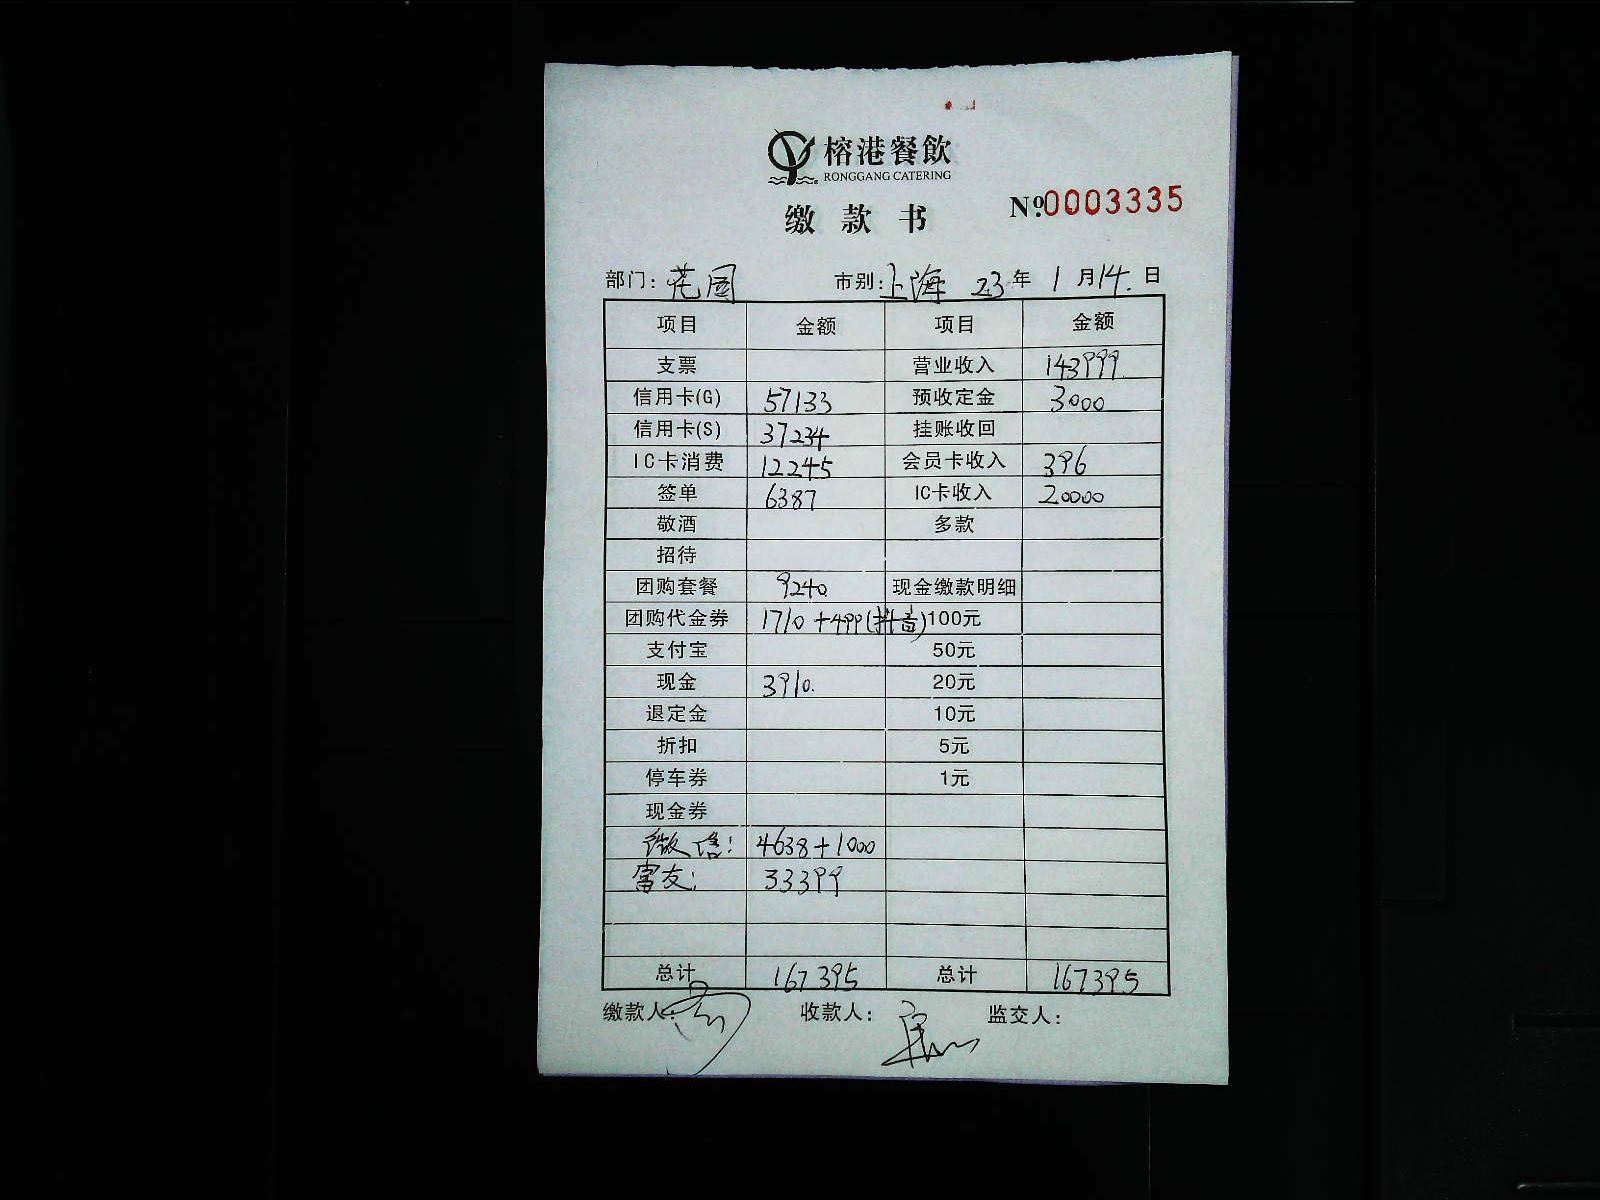 榕港餐飲
RONGGANG CATERING
缴款书
№0003335
部门：花园 市别：上海 23年1月14.日
项目 金额 项目 金额
支票 营业收入 143999.
信用卡(G) 57133 预收定金 3000
信用卡(S) 37234 挂账收回
IC卡消费 12245 会员卡收入 396
签单 6387 IC卡收入 20000
敬酒 多款
招待
团购套餐 9240 现金缴款明细
团购代金券 1710+499(抖音) 100元
支付宝 50元
现金 3910. 20元
退定金 10元
折扣 5元
停车券 1元
现金券
微信： 4638+1000
富友： 33399
总计 167395 总计 167395
缴款人： 收款人： 监交人：